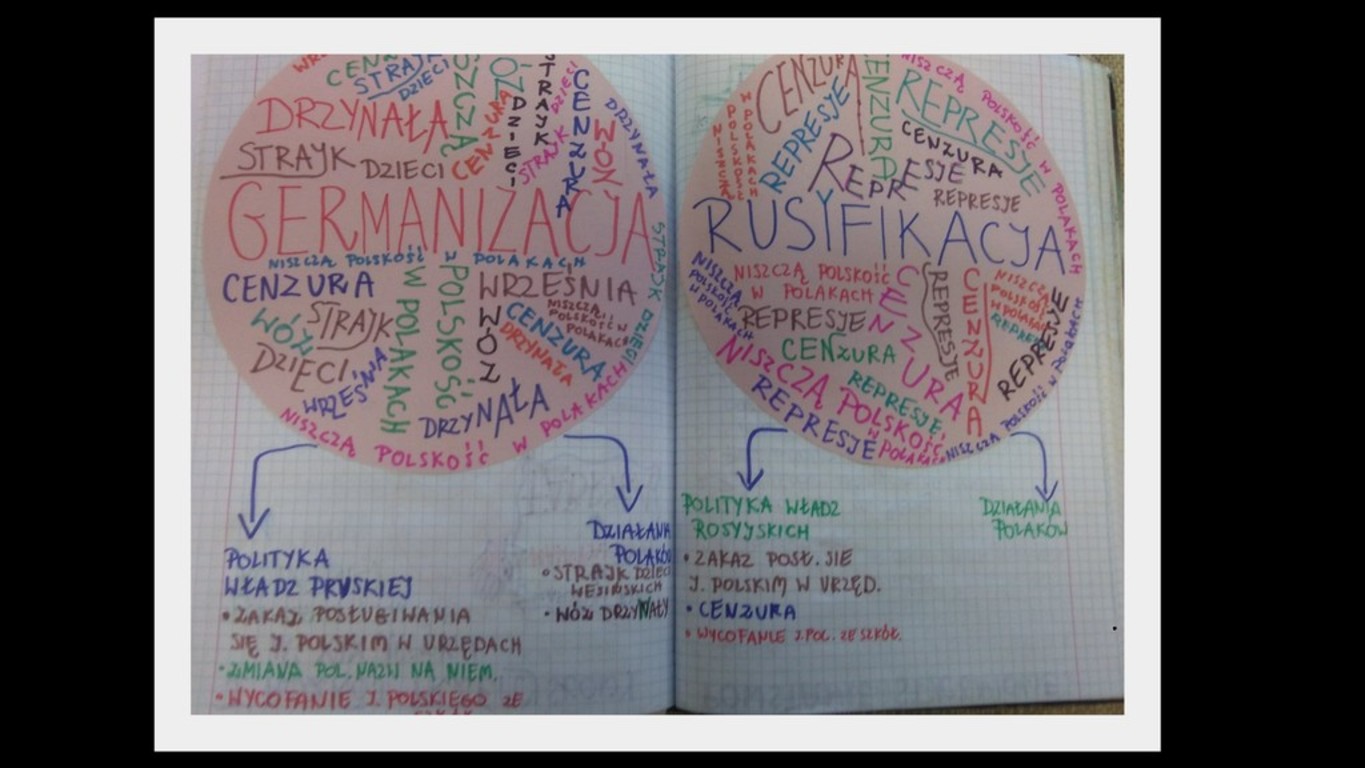 WRZ
CEN
STRAJK
DZIECI
DRZYNAŁA
STRAJK DZIECI
CENZURA
DZIECI
STRAJK
DZIECI
STRAJK
CENZURA
WÓZ
DRZYNAŁA
GERMANIZACJA
NISZCZĄ POLSKOŚĆ W POLAKACH
STRAJK DZIECI
CENZURA
STRAJK
WÓZ
DZIECI
WRZEŚNIA
W POLAKACH
POLSKOŚĆ
WRZEŚNIA
WÓZ
NISZCZĄ
POLSKOŚĆ W
POLAKACH
CENZURA
DRZYNAŁA
DRZYNAŁA
NISZCZĄ POLSKOŚĆ W POLAKACH
POLITYKA
WŁADZ PRUSKIEJ
• ZAKAZ POSŁUGIWANIA
SIĘ J. POLSKIM W URZĘDACH
• ZMIANA POL. NAZW NA NIEM.
• WYCOFANIE J. POLSKIEGO ZE
DZIAŁANIA
POLAKÓW
• STRAJK DZIECI
• WÓZ DRZYNAŁY
CENZURA
NISZCZĄ
POLSKOŚĆ
W POLAKACH
REPRESJE
CENZURA
NISZCZĄ POLSKOŚĆ W POLAKACH
REPRESJE
CENZURA
REPRESJE
REPRESJE
RUSYFIKACJA
NISZCZĄ
POLSKOŚĆ
W POLAKACH
NISZCZĄ POLSKOŚĆ
W POLAKACH
REPRESJE
CENZURA
CENZURA
REPRESJE
CENZURA
NISZCZĄ
POLSKOŚĆ
W POLAKACH
REPRESJE
REPRESJE
NISZCZĄ POLSKOŚĆ
W POLAKACH
REPRESJE
NISZCZĄ POLSKOŚĆ W POLAKACH
POLITYKA WŁADZ
ROSYJSKICH
• ZAKAZ POSŁ. SIE
J. POLSKIM W URZĘD.
• CENZURA
• WYCOFANIE J. POL. ZE SZKÓŁ.
DZIAŁANIA
POLAKÓW